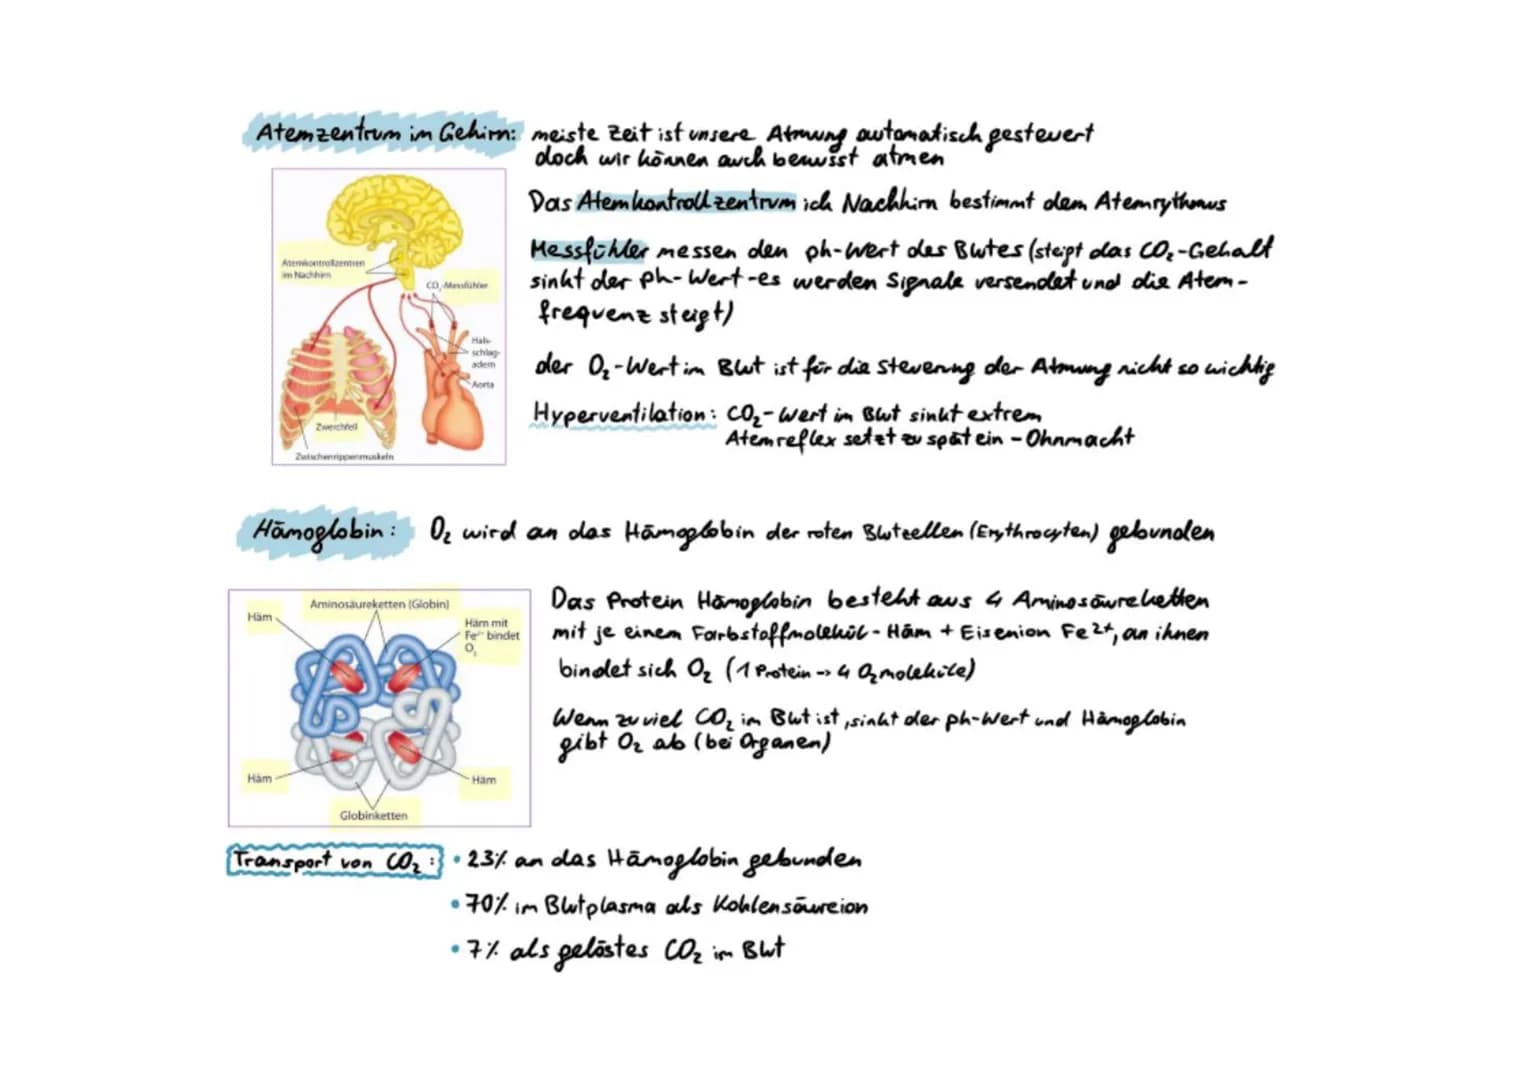 Atemzentrum im Gehirn: meiste Zeit ist unsere Atmung automatisch gesteuert
doch wir können auch bewusst atmen
Das Atemkontrollzentrum ich Nachhirn bestimmt dem Atemrythmus
Messfühler messen den ph-Wert des Blutes (steigt das CO₂-Gehalt
sinkt der ph-Wert-es werden Signale versendet und die Atem-
frequenz steigt)
der O₂-Wert im Blut ist für die Steuerung der Atmung nicht so wichtig
Hyperventilation: CO₂-Wert im Blut sinkt extrem
Atemreflex setzt zu spät ein - Ohnmacht
Atemkontrollzentren
im Nachhirn
CO₂-Messfühler
Hals-
schlag-
adern
Aorta
Zwerchfell
Zwischenrippenmuskeln
Hämoglobin: O₂ wird an das Hämoglobin der roten Blutzellen (Erythrocyten) gebunden
Das Protein Hämoglobin besteht aus 4 Aminosäureketten
mit je einem Farbstoffmolekül - Häm + Eisenion Fe²⁺, an ihnen
bindet sich O₂ (1 Protein -> 4 O₂moleküle)
Wenn zu viel CO₂ im Blut ist, sinkt der ph-Wert und Hämoglobin
gibt O₂ ab (bei Organen)
Häm
Aminosäureketten (Globin)
Häm mit
Fe²⁺ bindet
O₂
Häm
Häm
Globinketten
Transport von CO₂: • 23% an das Hämoglobin gebunden
• 70% im Blutplasma als Kohlensäureion
• 7% als gelöstes CO₂ im Blut